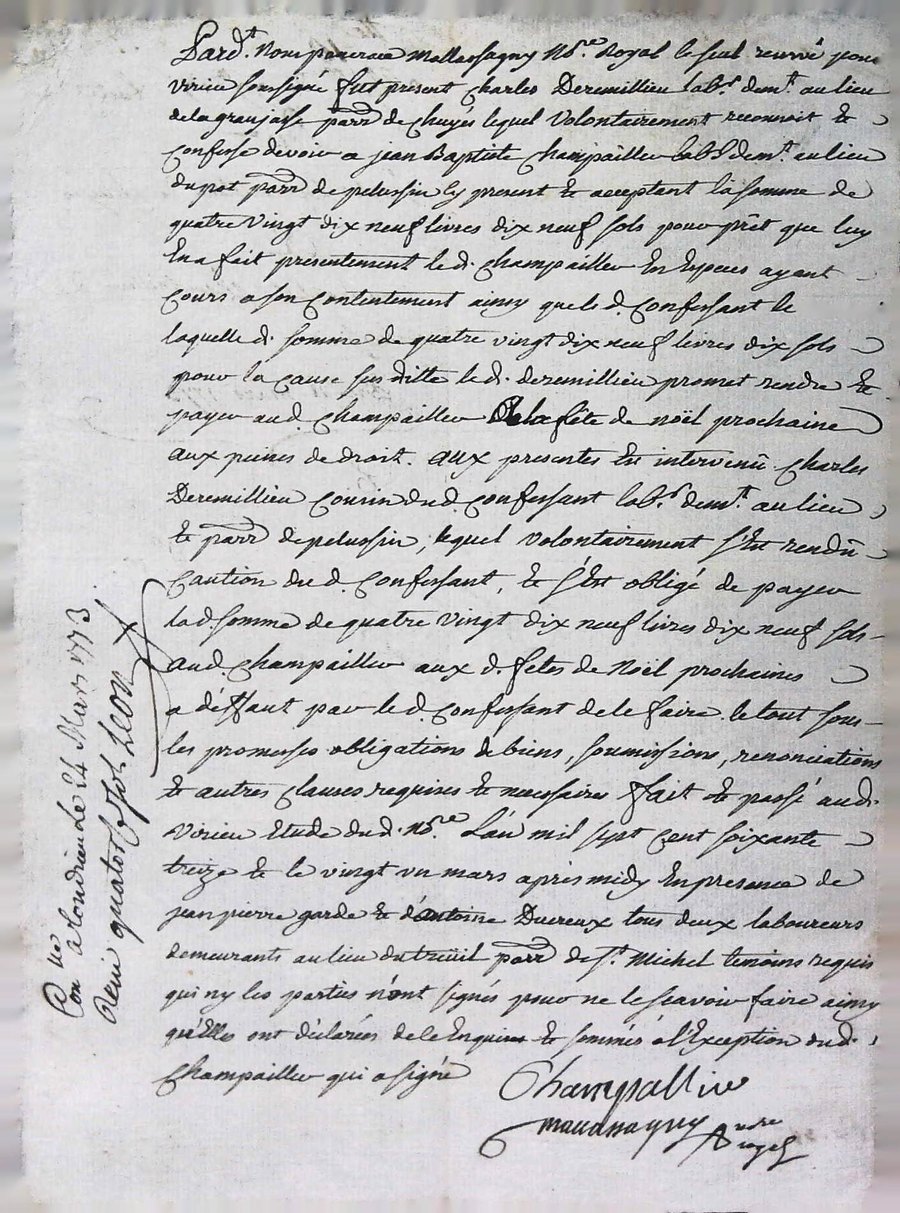 Pard.t Nous pancrace mallassagny No.re Royal le seul reservé pour
virieu soussigné fut present charles Deremillieu lab.r dem.t au lieu
de la granjasse parr de chuyés lequel volontairement reconnoit et
confesse devoir a jean Baptiste champailler lab.r dem.t au lieu
du pot parr de pelussin icy present et acceptant la somme de
quatre vingt dix neuf livres dix neuf sols pour prêt que luy
en a fait presentement le d. champailler en especes ayant
cours a son contentement ainsy que le d. confessant le
laquelle d. somme de quatre vingt dix neuf livres dix sols
pour la cause sus ditte le d. deremillieu promet rendre et
payer aud. champailler a la fête de noël prochaine
aux peines de droit. aux presentes est intervenû charles
Deremillieu cousin dud. confessant lab.r dem.t au lieu
et parr de pelussin, lequel volontairement s'est rendû
caution du d. confessant, et s'est obligé de payer
la d. somme de quatre vingt dix neuf livres dix neuf sols
aud. champailler aux d. fetes de Noël prochaines
a déffaut par le d. confessant de le faire. le tout sous
les promesses obligations de biens, soumissions, renonciations
et autres clauses requises et necessaires fait et passé aud.
virieu etude dud. no.re L'an mil sept cent soixante
treize et le vingt un mars après midy en presence de
jean pierre garde et d'antoine Ducreux tous deux laboureurs
demeurants au lieu du treüil parr de S.t Michel temoins requis
qui ny les parties n'ont signés pour ne le sçavoir faire ainsy
qu'elles ont déclarées de le enquises et sommés a l'Exception dud.
champailler qui a signé
Champallier
Con.lé a Condrieu le 24 Mars 1773.
Reçu quatorze sols Leon